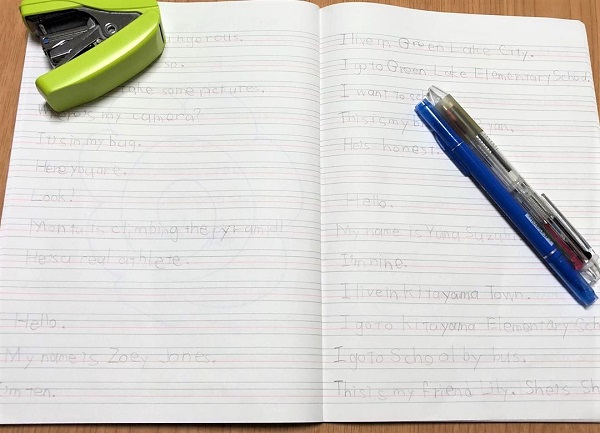 ngerous.
take some pictures.
my camera?
It's in my bag.
Here you are.
Look!
Montu is climbing the pyramid!
He's a real athlete.
Hello.
My name is Zoey Jones.
I'm ten.
I live in Green Lake City.
I go to Green Lake Elementary School.
I want to
This is my
He is honest.
Hello.
My name is Yuma Suzu
I'm nine.
I live in Kitayama Town.
I go to Kitayama Elementary Scho
I go to School by bus.
This is my friend Lily. She is Sh